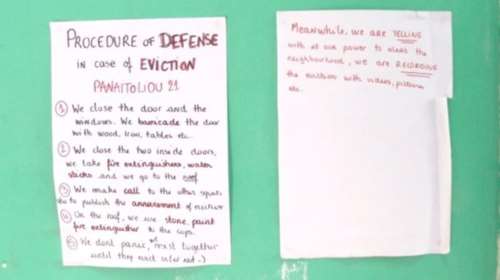 PROCEDURE OF DEFENSE
in case of EVICTION
PANAITOLIOU 21
① We close the door and the
windows. We barricade the door
with wood, Iron, tables etc.
② We close the two inside doors,
we take fire extinguishers, water
sticks and we go to the roof
③ We make call to the other squats
to publish the announcement of eviction
④ On the roof, we use stone, paint
fire extinguisher to the cops.
⑤ We dont panic, resist together
until they
Meanwhile, we are YELLING
with all our power to alert the
neighbourhood, we are RECORDING
the eviction with videos, pictures
etc.